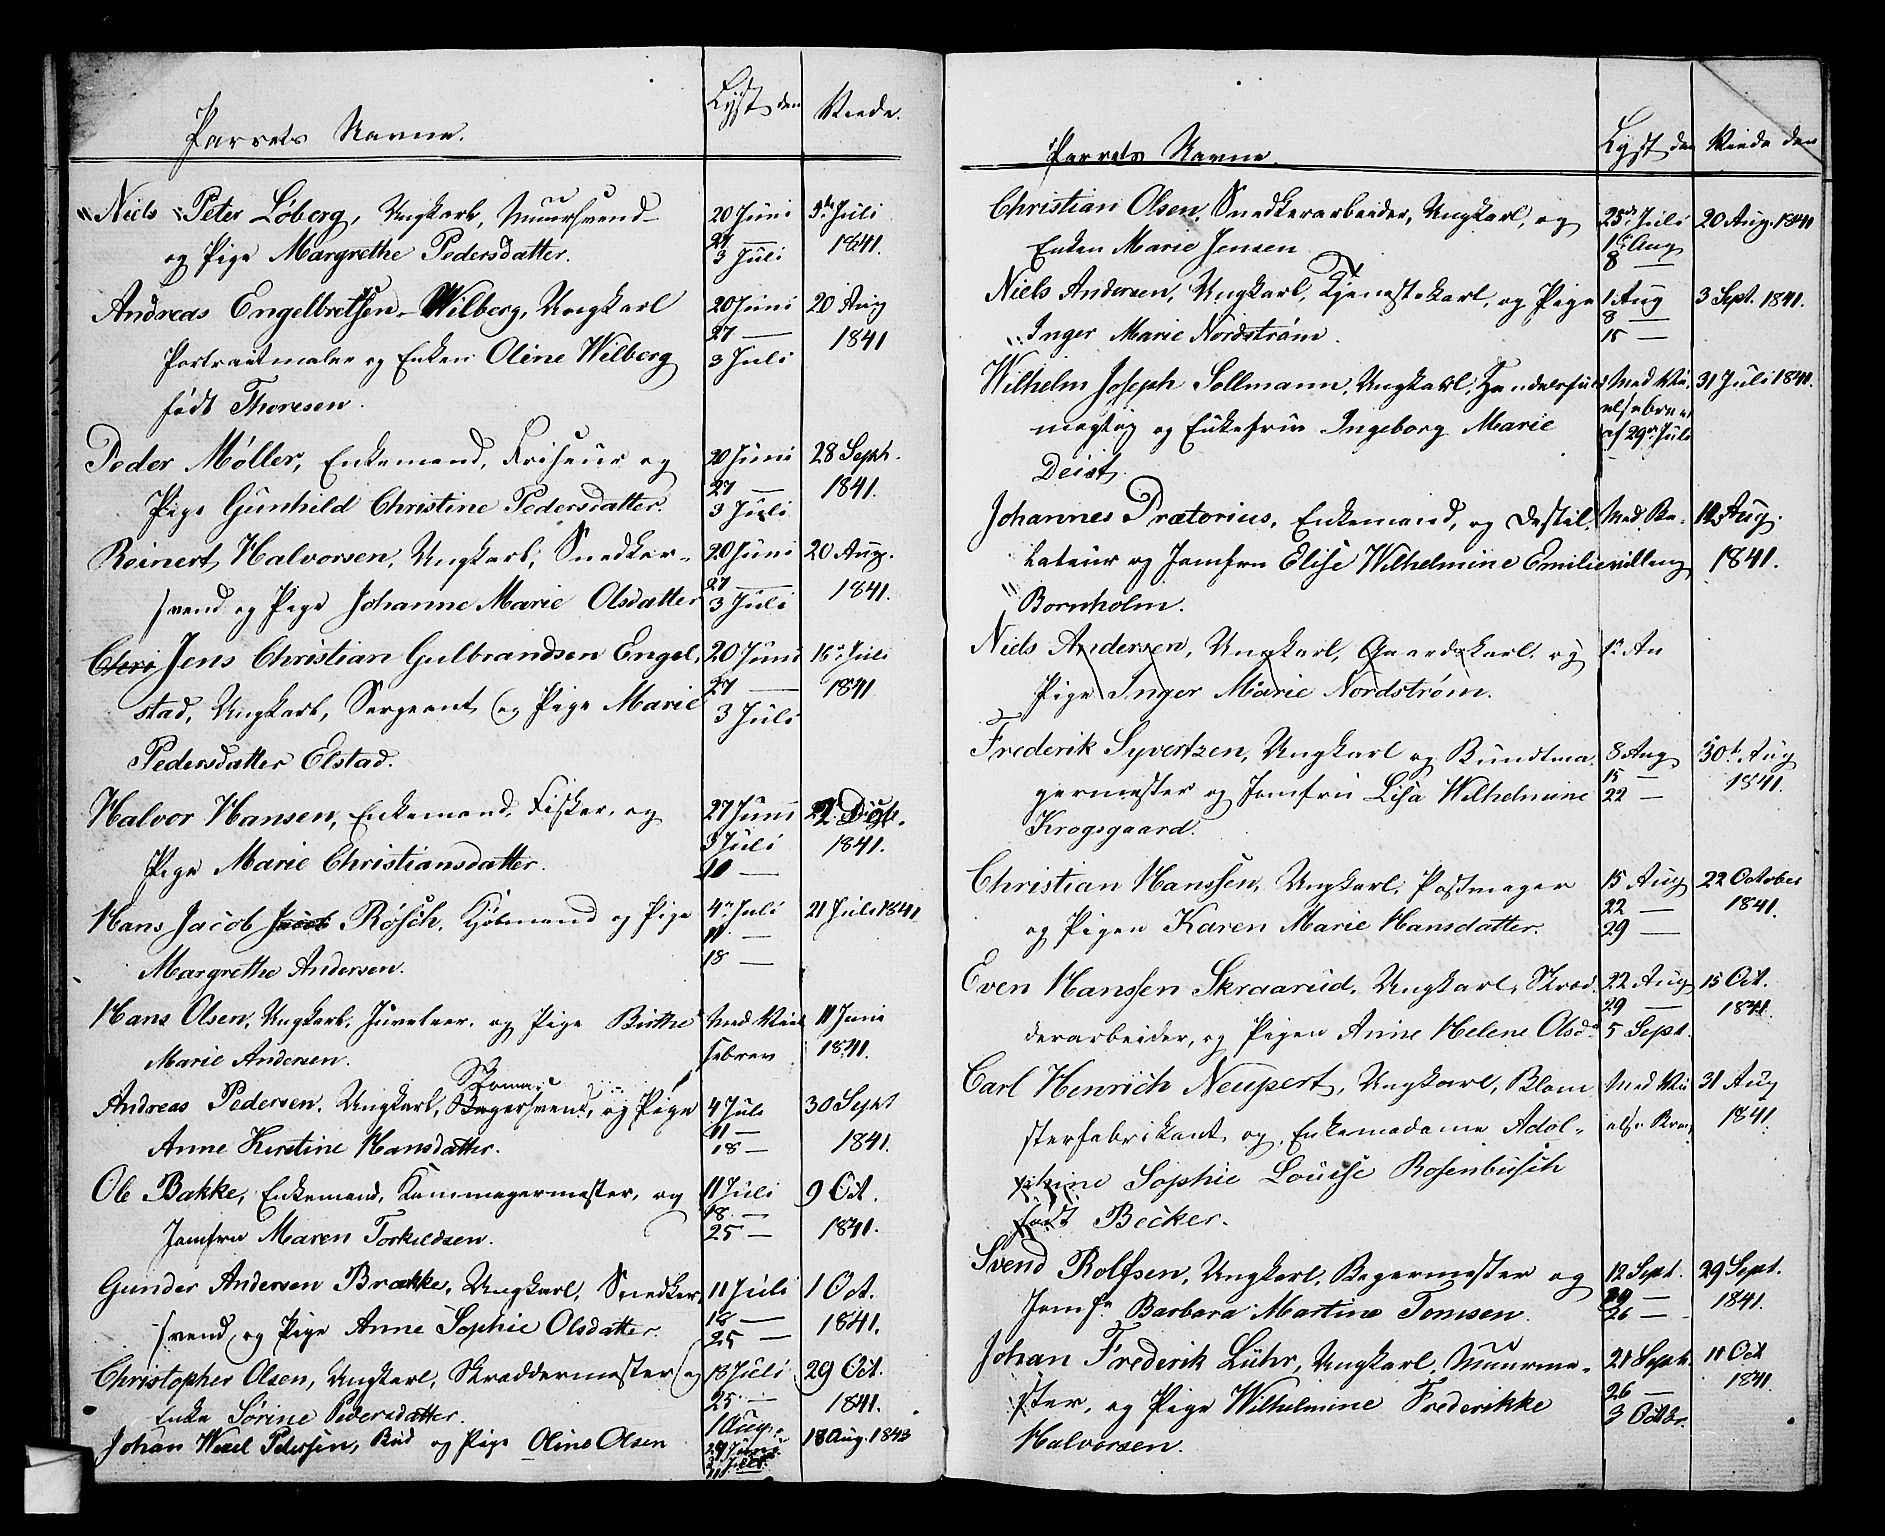 Parrets Navne.
Lyst den
Viede.
Niels Peter Löberg, Ungkarl, Muursvend
og Pige Margrethe Pedersdatter.
20 Juni
27 —
3 Juli
3die Juli
1841.
Andreas Engelbretsen Wilberg, Ungkarl
Portraitmaler og Enken Oline Wilberg
født Thoresen.
20 Juni
27 —
3 Juli
20 Aug
1841
Peder Møller, Enkemand, Friseur og
Pige Gunhild Christine Pedersdatter.
20 Juni
27 —
3 Juli
28 Sept.
1841.
Reinert Halvorsen, Ungkarl, Snedker-
svend og Pige Johanne Marie Olsdatter
20 Juni
27 —
3 Juli
20 Aug.
1841.
Chri Jens Christian Gulbrandsen Engel,
stad, Ungkarl, Sergeant og Pige Marie
Pedersdatter Elstad.
20 Juni
27 —
3 Juli
16 Juli
1841
Halvor Hansen, Enkemand, Fisker, og
Pige Marie Christiansdatter.
27 Juni
3 Juli
10 —
1841.
Hans Jacob Jacob Røsch, Kjöbmand og Pige
Margrethe Andersen.
4 Juli
11 —
18 —
21 Juli 1841
Hans Olsen, Ungkarl, Juveleer, og Pige Birthe
Marie Andersen.
Med Viel
sebrev
11 Juni
1841.
Andreas Pedersen, Ungkarl, Bagersvend, og Pige
Anne Kirstine Hansdatter.
4 Juli
11 —
18 —
30 Sept
1841.
Ole Bakke, Enkemand, Kammagermester, og
Jomfru Maren Torkildsen.
11 Juli
18 —
25 —
9 Oct.
1841.
Gunder Andersen Brække, Ungkarl, Snedker,
svend, og Pige Anne Sophie Olsdatter.
11 Juli
18 —
25 —
1 Oct.
1841.
Christopher Olsen, Ungkarl, Skreddermester og
Enke Sörine Pedersdatter.
18 Juli
25 —
1 Aug.
29 Oct.
1841.
Johan Wexel Petersen, Bud og Pige Oline Olsen
18 Aug. 1843
Parrets Navne.
Lyst den
Viede den
Christian Olsen, Snedkerarbeider, Ungkarl, og
Enken Marie Jensen
25de Juli
1ste Aug
8 —
20 Aug. 1841
Niels Andersen, Ungkarl, Tjenestekarl, og Pige
Inger Marie Nordstrøm.
1 Aug
8 —
15 —
3 Sept. 1841.
Wilhelm Joseph Sollmann, Ungkarl, Handelsfuld
mægtig og Enkefrue Ingeborg Marie
Deist.
Med Vi-
elsebrev
af 29de Juli
31 Juli 1841.
Johannes Prætorius, Enkemand, og Destil,
lateur og Jomfru Elise Wilhelmine Emilie
Bornholm.
Med Be-
villing
12 Aug.
1841.
Niels Andersen, Ungkarl, Gaardskarl, og
Pige Inger Marie Nordstrøm.
Frederik Syvertzen, Ungkarl og Bundtma-
germester og Jomfru Lisa Wilhelmine
Krogsgaard.
8 Aug
15 —
22 —
30te Aug
1841.
Christian Hanssen, Ungkarl, Postmager
og Pigen Karen Marie Hansdatter.
15 Aug
22 —
29 —
22 October
1841.
Even Hanssen Skraarud, Ungkarl, Skræd-
derarbeider, og Pigen Anne Helene Olsdr
22 Aug
29 —
5 Sept.
15 Oct.
1841.
Carl Henrich Neupert, Ungkarl, Blom
sterfabrikant og Enkemadame Adol-
phine Sophie Louise Rosenbusch
født Becker.
Med Vi
else Brev
31 Aug
1841.
Svend Rolfsen, Ungkarl, Bagermester og
Jomfr Barbara Martine Tomsen.
12 Sept.
19 —
26 —
29 Sept.
1841.
Johan Frederik Lühr, Ungkarl, Muurme-
ster, og Pige Wilhelmine Frederikke
Halvorsen.
21 Sept.
26 —
3 Octbr.
11 Oct
1841.